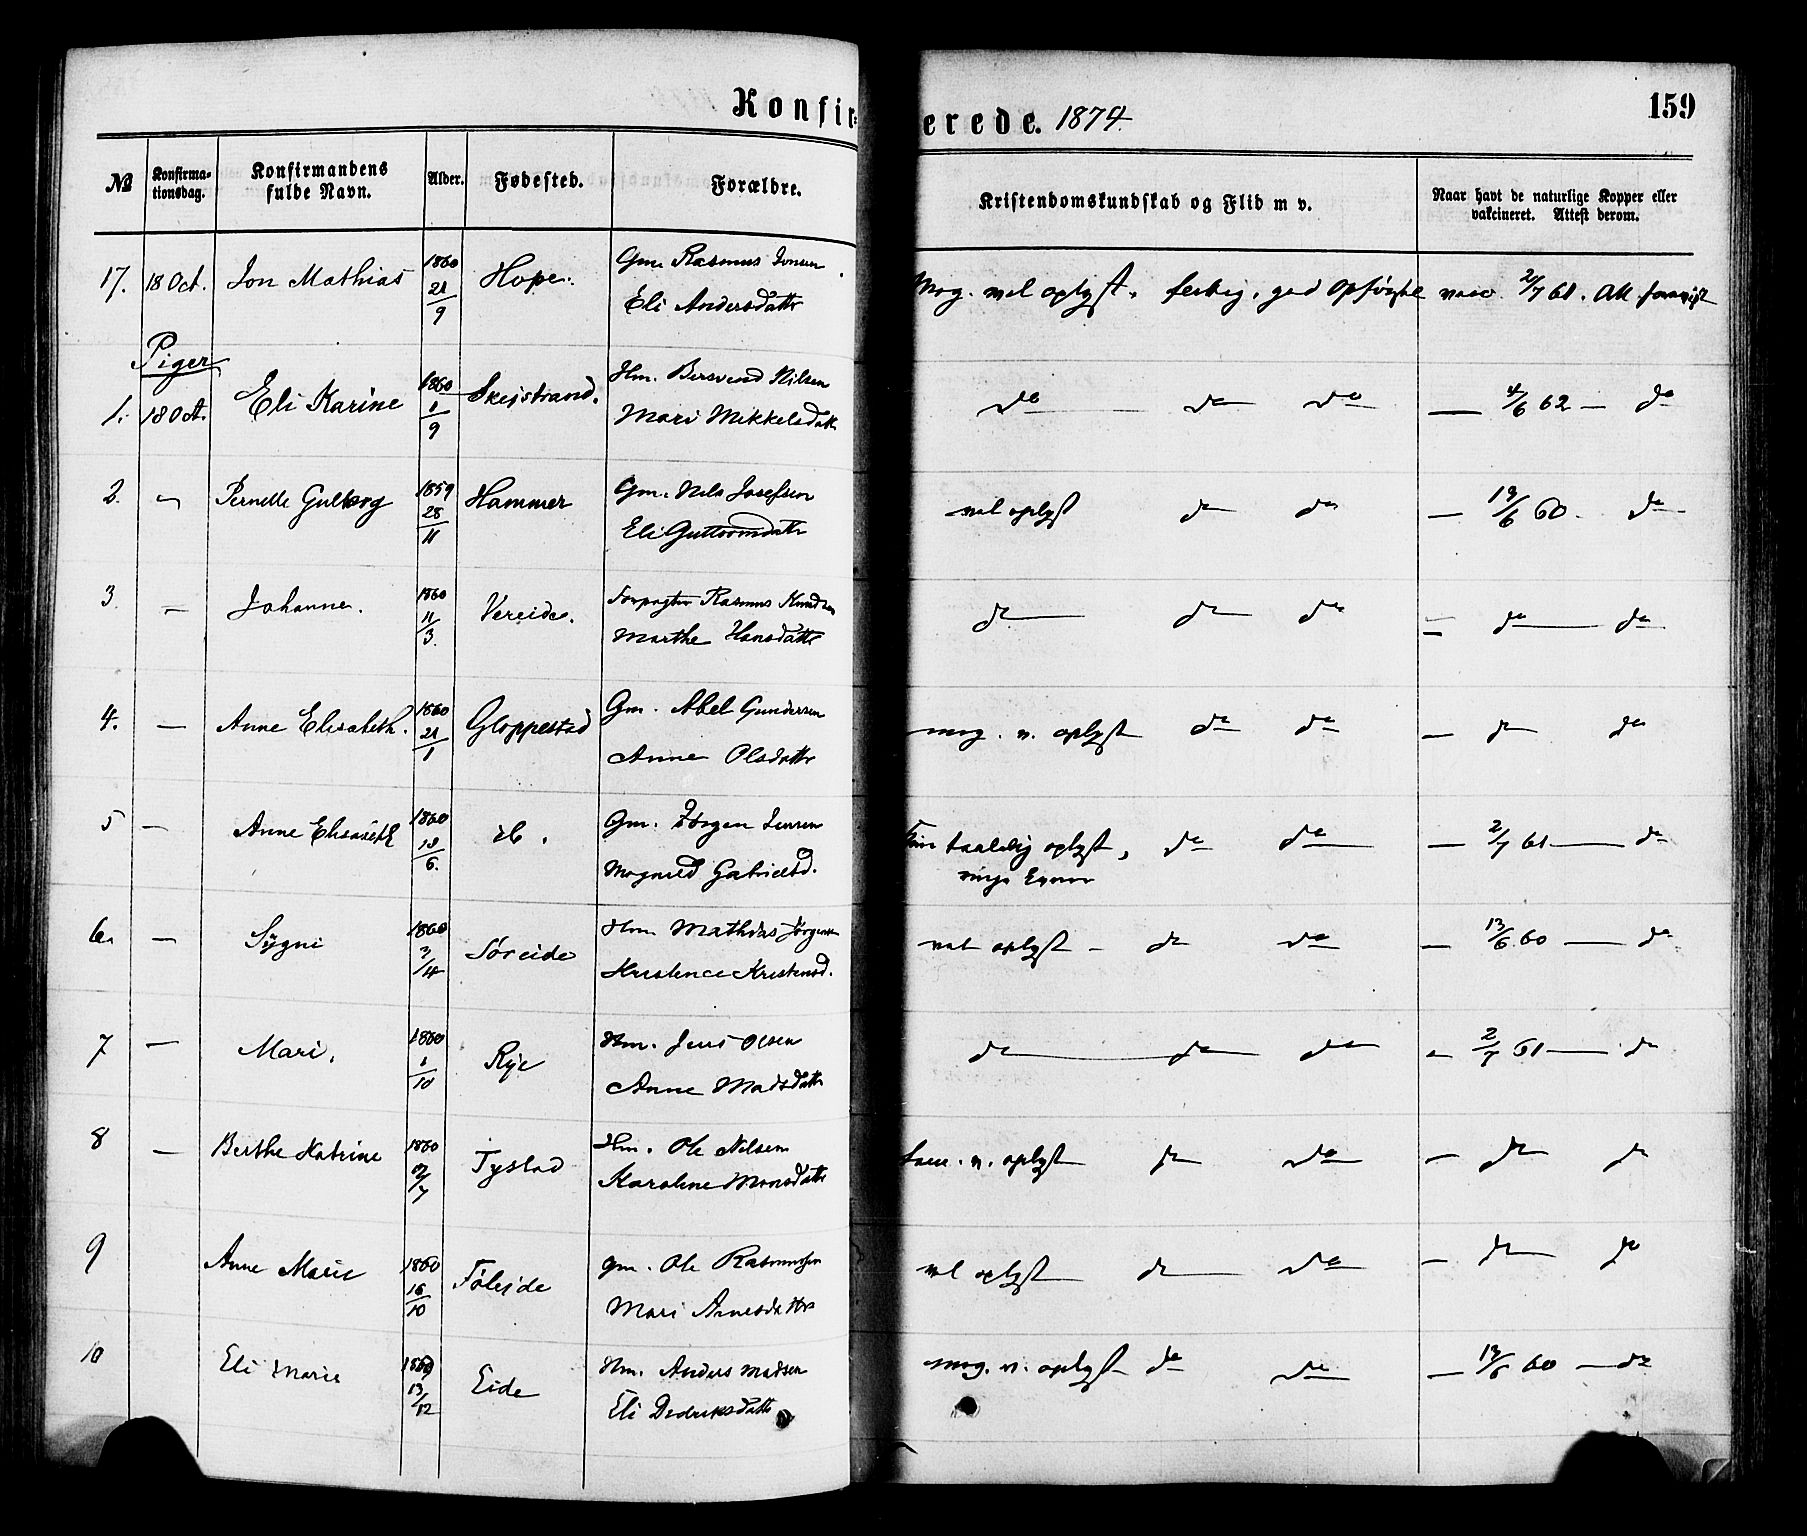 Konfirmerede. 1874.
159
№ Konfirmationsdag. Konfirmandens fulde Navn. Alder. Fødested. Forældre. Kristendomskundskab og Flid m v. Naar havt de naturlige Kopper eller vakcineret. Attest derom.
17. 18 Oct. Jon Mathias 1860 21/9 Hope. Gm. Rasmus Jonsen Mog. vel oplyst, flittig, god Opførsel vacc. 2/7 61. Att. forevist
Eli Andersdattr
Piger
1. 18 Oct. Eli Karine 1860 1/9 Skeistrand. Hm. Bersvend Nilsen do do do — 4/6 62 — do
Mari Mikkelsdattr
2. " Pernelle Gulborg 1859 28/11 Hammer Gm. Nils Josefsen vel oplyst do do — 13/6 60. do
Eli Guttormdattr
3. — Johanne. 1860 11/3. Vereide. Forpagter Rasmus Knudsen do do do — do — do
Marthe Hansdattr
4. — Anne Elisabeth. 1860 21/1 Gloppestad Gm. Abel Gundersen mog. v. oplyst do do — do do
Anne Olsdattr
5 — Anne Elisabeth 1860 18/6. ib. Gm. Jørgen Jensen taalelig oplyst, do do — 2/7 61 — do
Magnild Gabrielsd. ringe Evner
6. — Sygni 1860 3/4 Søreide Hm Mathias Jørgensen vel oplyst — do do — 13/6 60 — do
Kristence Kristensd.
7 — Mari. 1860 1/10 Rye Hm. Jens Olsen do do do — 2/7 61 — do
Anne Madsdattr
8 — Berthe Katrine 1860 Tystad Hm. Ole Nilsen v. oplyst do do — do do
Karoline Monsdattr
9 Anne Marie 1860 16/10 Føleide Gm. Ole Rasmussen vel oplyst do do — do do
Mari Arnesdattr
10 Eli Marie 13/12 Eide Hm. Anders Madsen mog. v. oplyst do do — 13/6 60 — do
Eli Dedriksdattr